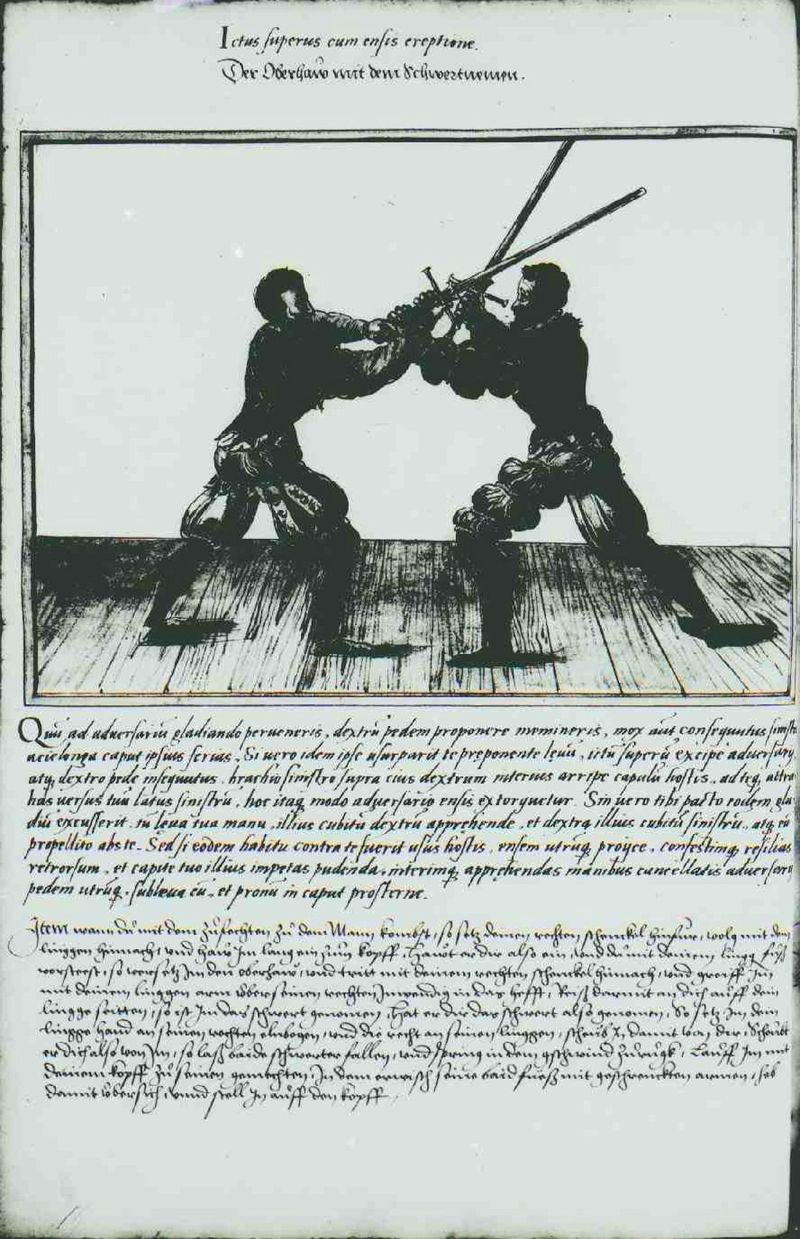 Ictus superus cum ensis ereptione.
Der Oberhaw mit dem Schwertnemen.
Qum ad adversariū gladiando perveneris, dextrū pedem proponere memineris, mox aut consequutus sinistro
acie longa caput ipsius ferias, Si vero idem ipse usurparit te preponente levū, ictū superū excipe adversarij
atq, dextro pede insequutus, brachio sinistro supra eius dextrum interius arripe capulū hostis, ad teq,
has versus tuū latus sinistrū, hoc itaq, modo adversario ensis extorquetur. Sin vero tibi pacto eodem gla
diū excusserit, tu leva tua manu, illius cubitū dextrū apprehende, et dextra illius cubitū sinistrū, atq, eū
propellito abs te. Sed si eodem habitu contra te fuerit usus hostis, ensem utrumq, proijce, confestimq, resilias
retrorsum, et capite tuo illius impetas pudenda, interimq, apprehendas manibus cancellatis adversarij
pedem utrumq, subleva eū, et pronū in caput prosterne.
Item wann dū mit dem zūfechten zū dem Mann kombst, so setz deinen rechten schenckel hinfür, volg mit dem
linggen hinnach, und haw Im lang ein zum kopff, Hawt er dir also ein, und dū mit deinem lingg fūß
vorsteest, so versetz Im den oberhaw, und tritt mit deinem rechten schenckel hinnach, und greiff Im
mit deinem linggen arm über seinen rechten Inwendig in das hefft, Reiß darmit an dich auff dein
lingge seitten, so ist Im das schwert genomen, Hat er dir das schwert also genomen, So setz Im dein
lingge hand an seinen rechten elnbogen, und die recht an seinen linggen, scheub In damit von dir, Scheubt
er dich also von Im, so laß baide schwerter fallen, und spring in dem gschwind zūrūgk, Lauff Im mit
deinem kopff zū seinen gemechten, In dem erwisch seine baid füeß mit geschrenckten armen, heb
damit übersich, unnd stell In auff den kopff,